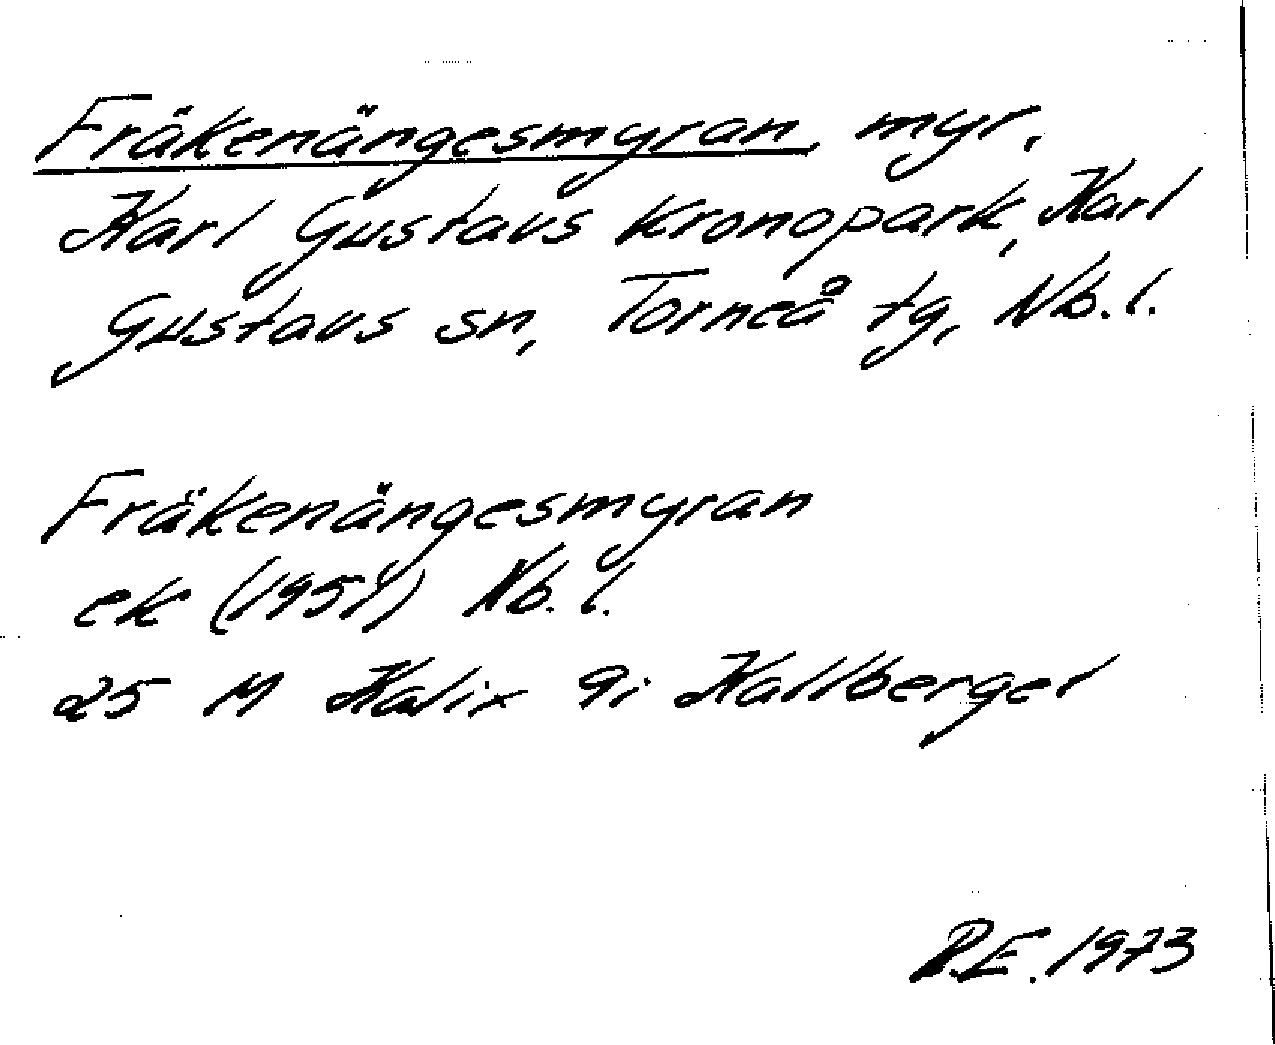 Fräkenängesmyran, myr,
Karl Gustavs kronopark, Karl
Gustavs sn, Torneå tg, Nb.l.
Fräkenängesmyran
ek (1951) Nb.l.
25 M Kalix 9i Kallberget
R.E. 1973